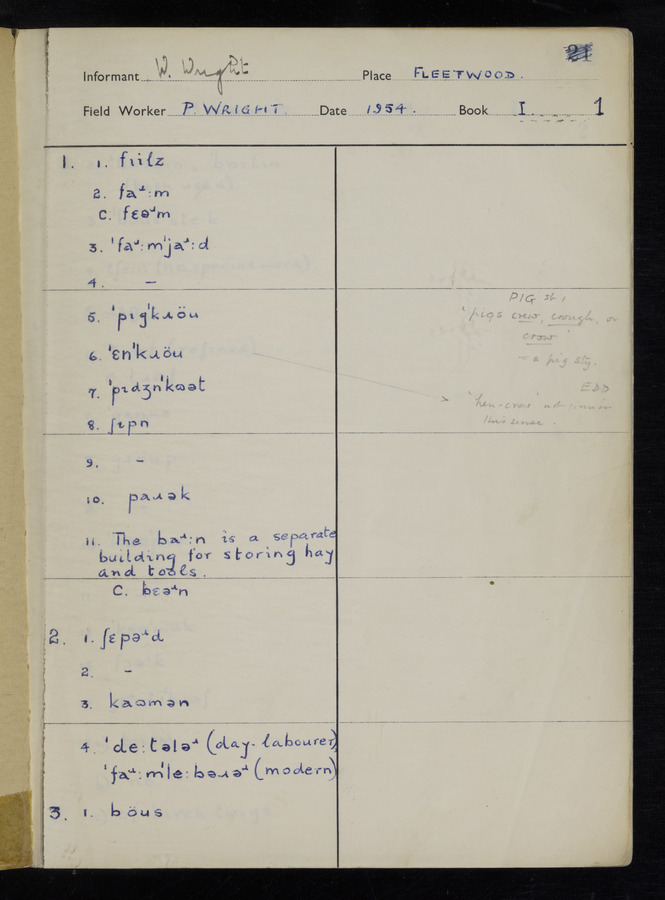 21
Informant W. Wright Place FLEETWOOD.
Field Worker P. WRIGHT Date 1954. Book I. 1
1. 1. fiɪlz
2. faʴ:m
C. fɛəʴm
3. 'faʴ:m'jaʴ:d
4. –
5. 'pɪg'kɹöu
6. 'ɛn'kɹöu
7. 'pɪdʒn'kɷət
8. ʃɪpn
9. –
10. paɹək
11. The baʴ:n is a separate
building for storing hay
and tools.
C. bɛəʴn
2. 1. ʃɛpəʴd
2. –
3. kaɷmən
4. 'de:tələʴ (day-labourer)
'faʴ:m'le:bəɹəʴ (modern)
3. 1. böus
PIG sb 1
'pigs crew, crough, or
crow'
– a pig sty.
EDD
'hen-crow' not in
this sense.